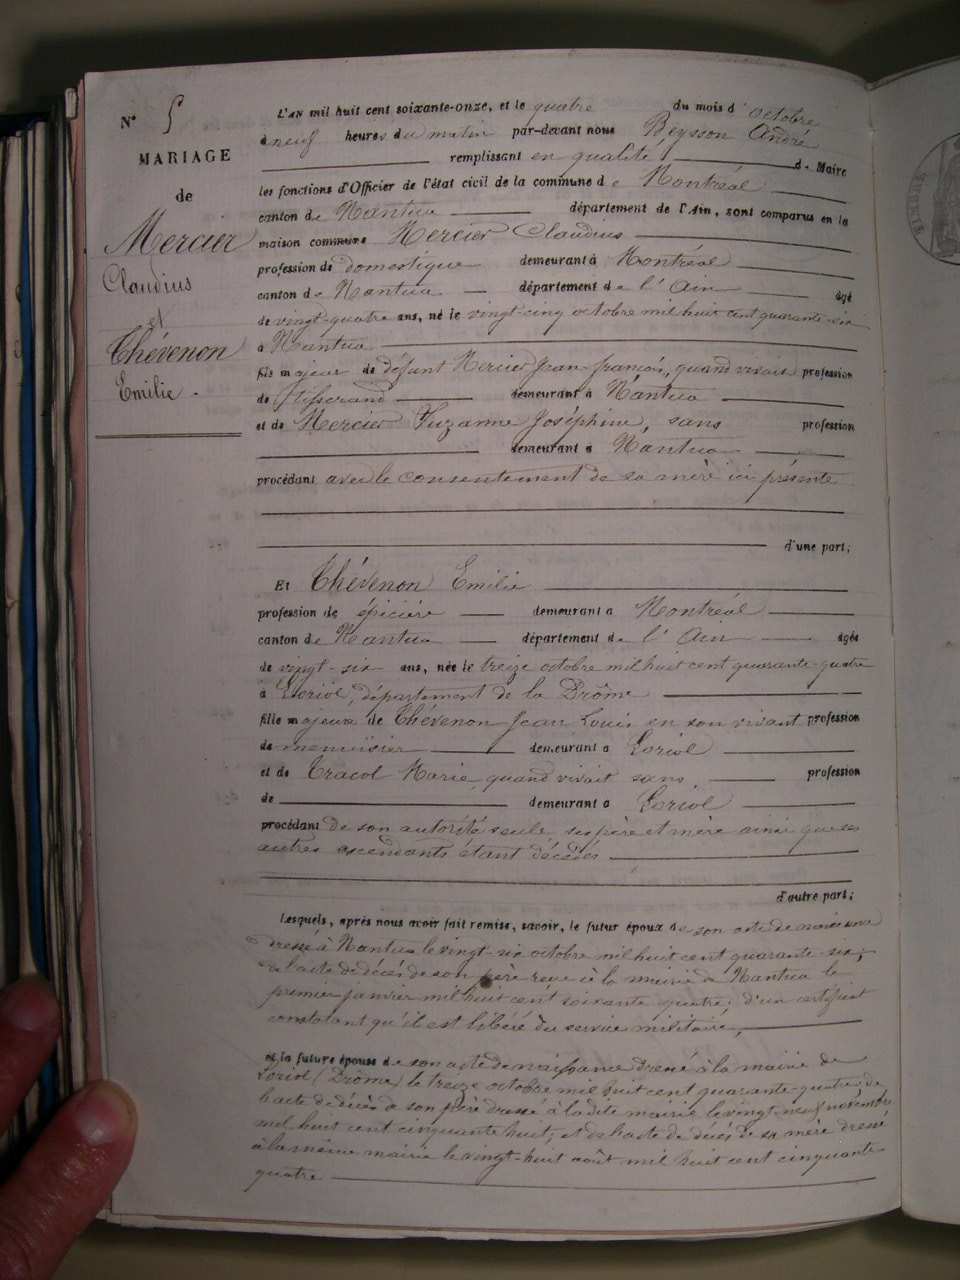 N° 5
MARIAGE
de
Mercier
Claudius
et
Thévenon
Emilie.
L'AN mil huit cent soixante-onze, et le quatre du mois d'octobre
à neuf heures du matin par-devant nous Beysson André
remplissant en qualité de Maire
les fonctions d'Officier de l'état civil de la commune de Montréal
canton de Nantua département de l'Ain, sont comparus en la
maison commune Mercier Claudius
profession de domestique demeurant à Montréal
canton de Nantua département de l'Ain âgé
de vingt-quatre ans, né le vingt-cinq octobre mil huit cent quarante-six
à Nantua
fils majeur de défunt Mercier Jean-françois, quand vivait profession
de tisserand demeurant à Nantua
et de Mercier Suzanne Joséphine, sans profession
demeurant à Nantua
procédant avec le consentement de sa mère ici présente
d'une part;
Et Thévenon Emilie
profession de épicière demeurant à Montréal
canton de Nantua département de l'Ain âgée
de vingt-six ans, née le treize octobre mil huit cent quarante-quatre
à Loriol, département de la Drôme
fille majeure de Thévenon Jean Louis en son vivant profession
de menuisier demeurant à Loriol
et de Tracol Marie, quand vivait sans profession
de demeurant à Loriol
procédant de son autorité seule, ses père et mère ainsi que ses
autres ascendants étant décédés
d'autre part;
Lesquels, après nous avoir fait remise, savoir, le futur époux de son acte de naissance
dressé à Nantua le vingt-six octobre mil huit cent quarante-six;
de l'acte de décès de son père reçu à la mairie de Nantua le
premier janvier mil huit cent soixante quatre; d'un certificat
constatant qu'il est libéré du service militaire,
et la future épouse de son acte de naissance dressé à la mairie de
Loriol (Drôme) le treize octobre mil huit cent quarante-quatre, de
l'acte de décès de son père dressé à la dite mairie le vingt-neuf novembre
mil huit cent cinquante huit; et de l'acte de décès de sa mère dressé
à la même mairie le vingt-huit août mil huit cent cinquante-
quatre
TIMBRE